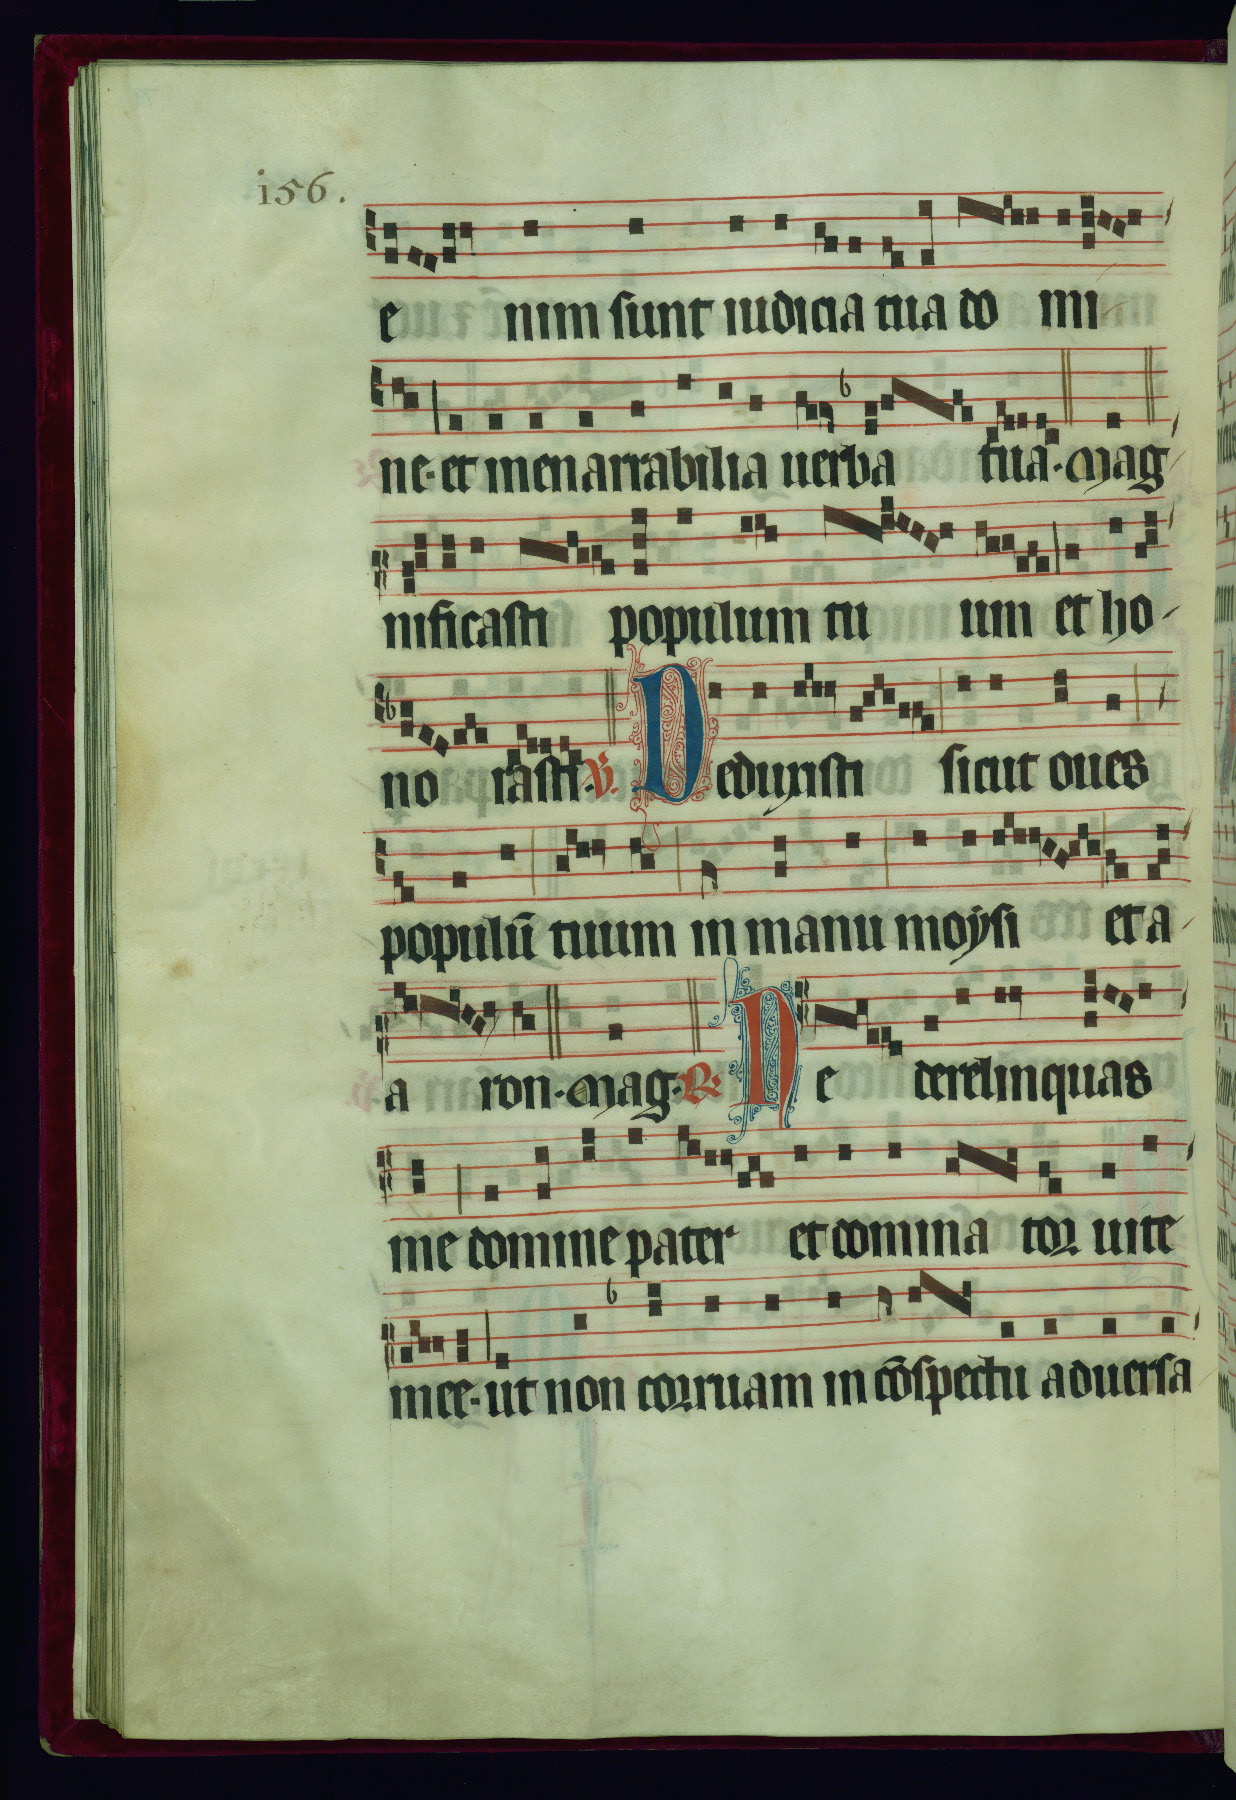 i56.
e nim sunt iudicia tua do mi
ne · et inenarrabilia uerba tua · Mag
nificasti populum tu um et ho-
no rasti · V. Deduxisti sicut oues
populū tuum in manu moysi et a
a ron · Mag · R. Ne derelinquas
me domine pater et domina tor uite
mee · ut non corruam in cōspectu aduersa